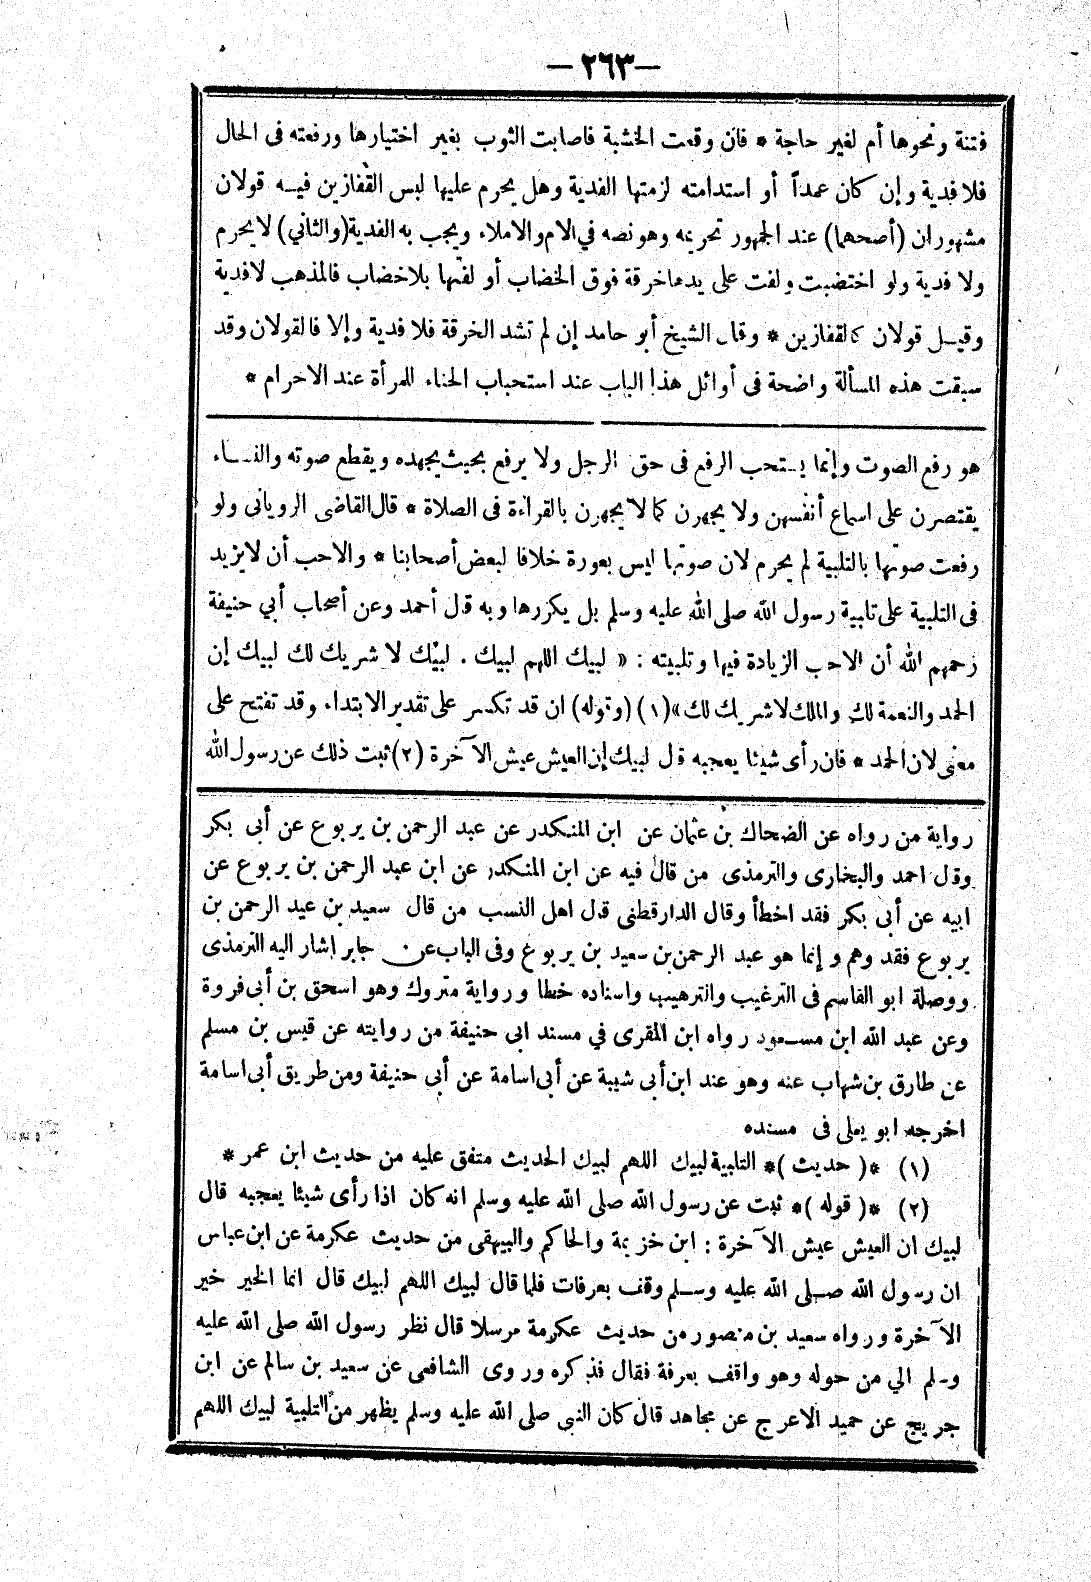 —٢٦٣—
فتنة ونحوها أم لغير حاجة * فان وقعت الخشبة فاصابت الثوب بغير اختيارها ورفعته فى الحال
فلا فدية وإن كان عمداً أو استدامته لزمتها الفدية وهل يحرم عليها لبس القفازين فيه قولان
مشهوران (أصحها) عند الجمهور تحريمه وهو نصه في الام والاملاء ويجب به الفدية (والثاني) لا يحرم
ولا فدية ولو اختضبت ولفت على يدها خرقة فوق الخضاب أو لفتها بلا خضاب فالمذهب لا فدية
وقيل قولان كالقفازين * وقال الشيخ أبو حامد إن لم تشد الخرقة فلا فدية وإلا فالقولان وقد
سبقت هذه المسألة واضحة فى أوائل هذا الباب عند استحباب الحناء للمرأة عند الاحرام *
هو رفع الصوت وإنما يستحب الرفع فى حق الرجل ولا يرفع بحيث يجهده ويقطع صوته والنساء
يقتصرن على اسماع أنفسهن ولا يجهرن كما لا يجهرن بالقراءة فى الصلاة * قال القاضى الرويانى ولو
رفعت صوتها بالتلبية لم يحرم لان صوتها ليس بعورة خلافا لبعض أصحابنا * والاحب أن لا يزيد
فى التلبية على تلبية رسول الله صلى الله عليه وسلم بل يكررها وبه قال أحمد وعن أصحاب أبي حنيفة
رحمهم الله أن الاحب الزيادة فيها وتلبيته : « لبيك اللهم لبيك . لبيك لا شريك لك لبيك إن
الحمد والنعمة لك والملك لا شريك لك» (١) (وقوله) ان قد تكسر على تقدير الابتداء وقد تفتح على
معنى لان الحمد * فان رأى شيئا يعجبه قال لبيك إن العيش عيش الآخرة (٢) ثبت ذلك عن رسول الله
رواية من رواه عن الضحاك بن عثمان عن ابن المنكدر عن عبد الرحمن بن يربوع عن أبى بكر
وقال احمد والبخارى والترمذى من قال فيه عن ابن المنكدر عن ابن عبد الرحمن بن يربوع عن
ابيه عن أبى بكر فقد اخطأ وقال الدارقطنى قال اهل النسب من قال سعيد بن عبد الرحمن بن
يربوع فقد وهم وإنما هو عبد الرحمن بن سعيد بن يربوع وفى الباب عن جابر اشار اليه الترمذى
ووصلة ابو القاسم فى الترغيب والترهيب واسناده خطا ورواية متروك وهو اسحق بن أبى فروة
وعن عبد الله ابن مسعود رواه ابن المقرى في مسند ابى حنيفة من روايته عن قيس بن مسلم
عن طارق بن شهاب عنه وهو عند ابن أبى شيبة عن أبى اسامة عن أبي حنيفة ومن طريق أبى اسامة
اخرجه ابو يعلى فى مسنده
(١) *( حديث )* التلبية لبيك اللهم لبيك الحديث متفق عليه من حديث ابن عمر *
(٢) *( قوله )* ثبت عن رسول الله صلى الله عليه وسلم انه كان اذا رأى شيئا يعجبه قال
لبيك ان العيش عيش الآخرة : ابن خزيمة والحاكم والبيهقى من حديث عكرمة عن ابن عباس
ان رسول الله صلى الله عليه وسلم وقف بعرفات فلما قال لبيك اللهم لبيك قال انما الخير خير
الآخرة ورواه سعيد بن منصور من حديث عكرمة مرسلا قال نظر رسول الله صلى الله عليه
وسلم الي من حوله وهو واقف بعرفة فقال فذكره وروى الشافعى عن سعيد بن سالم عن ابن
جريج عن حميد الاعرج عن مجاهد قال كان النبى صلى الله عليه وسلم يظهر من التلبية لبيك اللهم